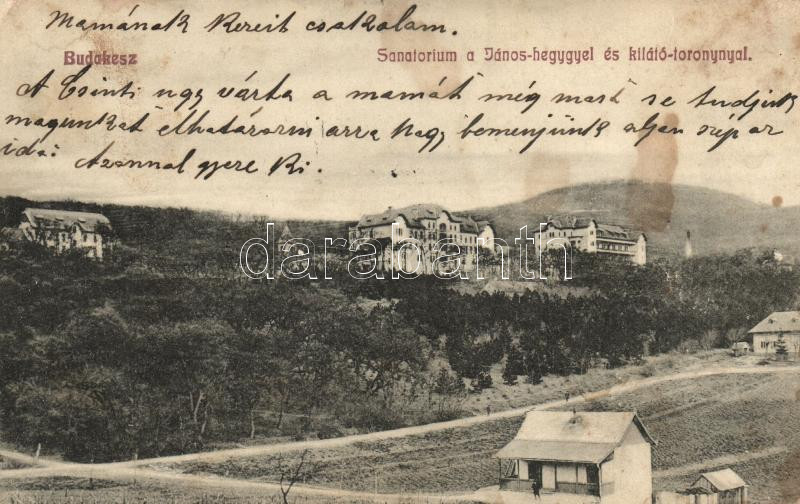 Mamának Kereit csokolam.
Budakesz
Sanatorium a János-hegygyel és kilátó-toronynyal.
A Csinti ugy várta a mamát még most se tudjuk
magunkat elhatározni arra hogy bemenjünk aljan szép az
idő. Azonnal gyere ki.
darabanth